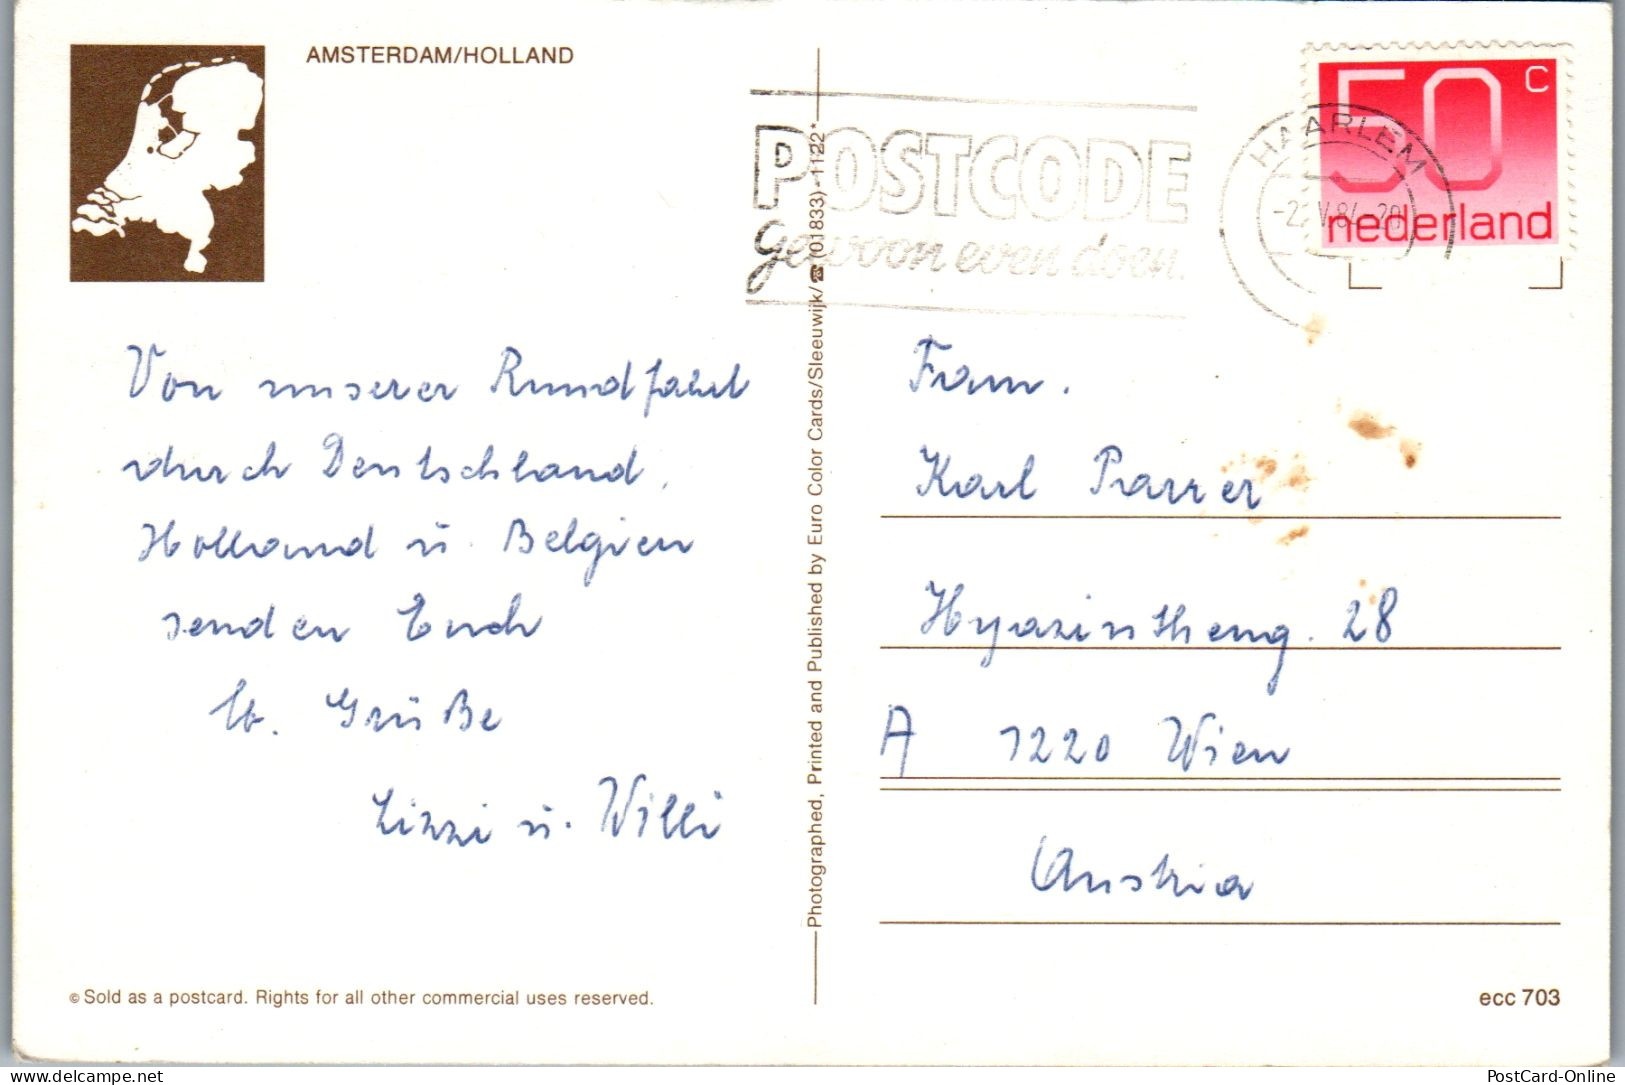 AMSTERDAM/HOLLAND
POSTCODE
gewoon even doen.
HAARLEM
50 c
nederland
Von unserer Rundfahrt
durch Deutschland,
Holland u. Belgien
senden Euch
lb. Grüße
Lizzi u. Willi
Photographed, Printed and Published by Euro Color Cards/Sleeuwijk/☎(01833) - 1122*
Fam.
Karl Parrer
Hyazintheng. 28
A 1220 Wien
Austria
© Sold as a postcard. Rights for all other commercial uses reserved.
ecc 703
PostCard-Online
delcampe.net